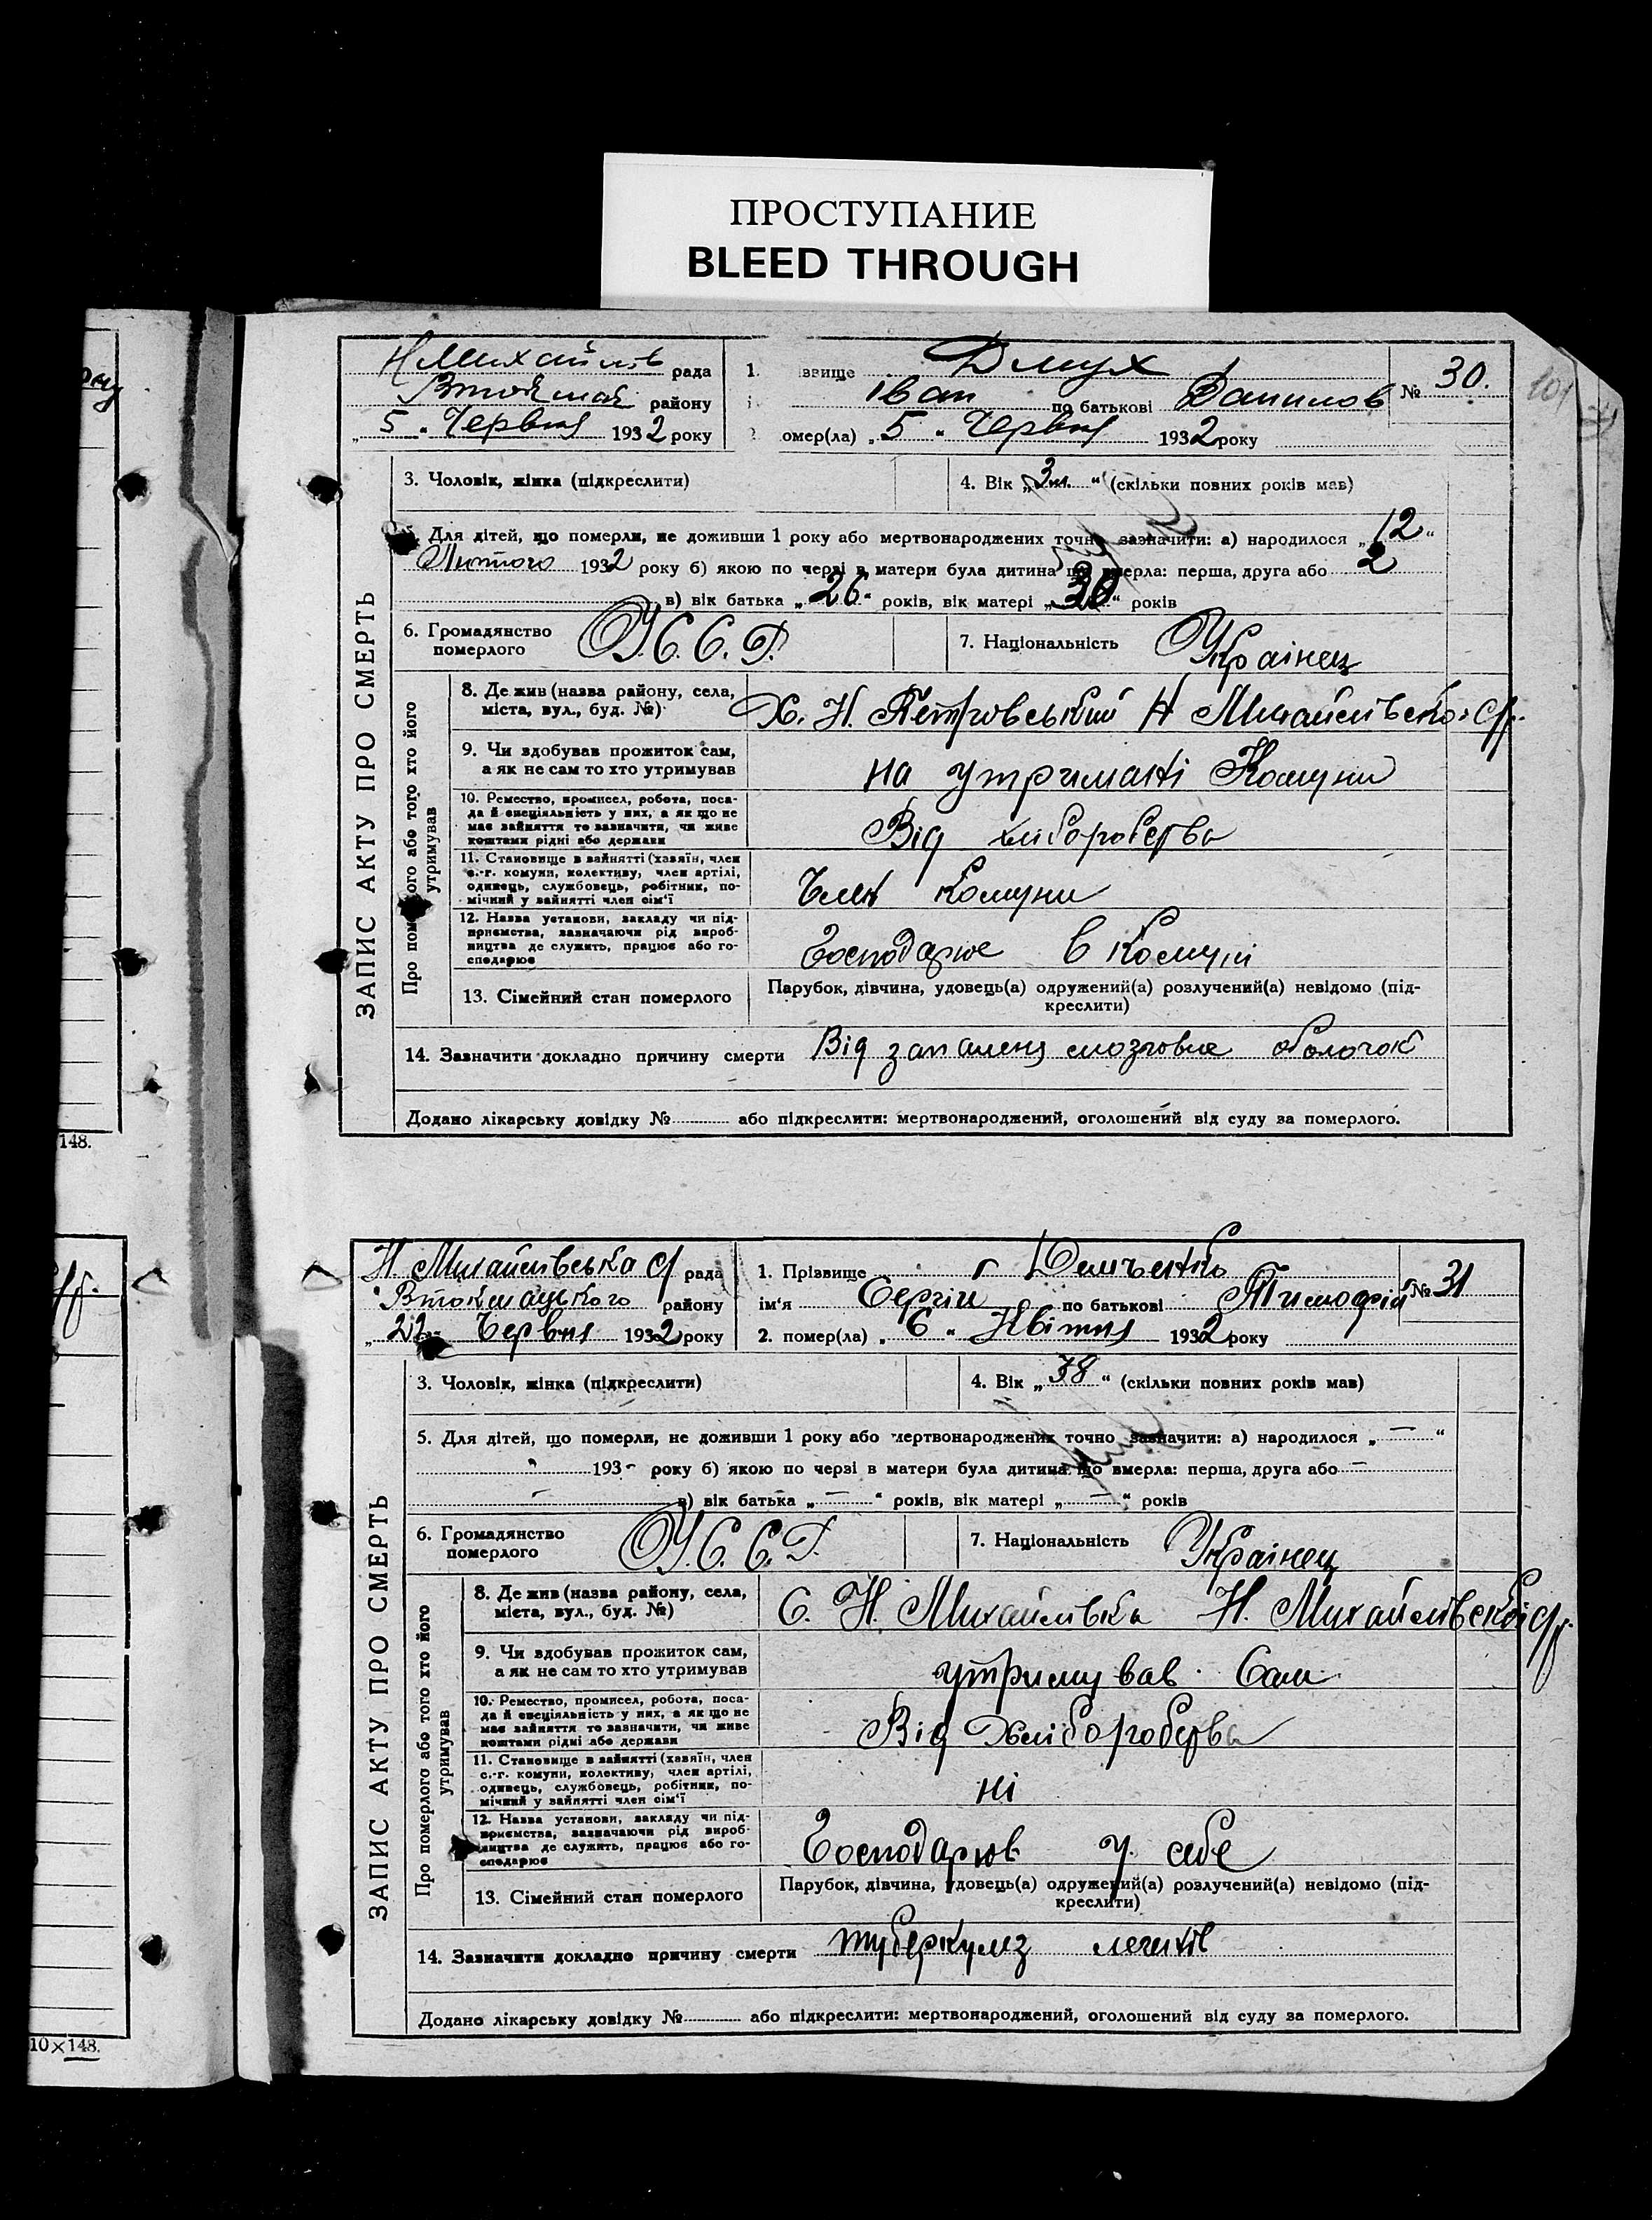 ПРОСТУПАНИЕ
BLEED THROUGH
Н Михайлів рада
району
„ 5 „ Червня 1932 року
1. ізвище Дмух
Іван по батькові Данилов
омер(ла) „ 5 „ Червня 1932 року
№ 30.
101
3. Чоловік, жінка (підкреслити)
4. Вік „ 3 м. “ (скільки повних років мав)
Для дітей, що померли, не доживши 1 року або мертвонароджених точно зазначити: а) народилося „ 12 “
Лютого 1932 року б) якою по черзі в матери була дитина що вмерла: перша, друга або 2
в) вік батька „ 26 “ років, вік матері „ 30 “ років
6. Громадянство
померлого
У.С.С.Р.
7. Національність Українец
ЗАПИС АКТУ ПРО СМЕРТЬ
Про померлого або того хто його
утримував
8. Де жив (назва району, села,
міста, вул., буд. №)
Х. Н. Петровський Н Михайлівсько с/р.
9. Чи здобував прожиток сам,
а як не сам то хто утримував
на утримані Комуни
10. Ремество, промисел, робота, поса-
да й спеціяльність у них, а як що не
має зайняття то зазначити, чи живе
коштами рідні або держави
Від хліборобства
11. Становище в зайнятті (хазяїн, член
с.-г. комуни, колективу, член артілі,
одинець, службовець, робітник, по-
мічний у зайнятті член сім'ї
Член комуни
12. Назва установи, закладу чи під-
приємства, зазначаючи рід вироб-
ництва де служить, працює або го-
сподарює
Господарює в комуні
13. Сімейний стан померлого
Парубок, дівчина, удовець(а) одружений(а) розлучений(а) невідомо (під-
креслити)
14. Зазначити докладно причину смерти Від запаленя мозговые оболочок
Додано лікарську довідку № або підкреслити: мертвонароджений, оголошений від суду за померлого.
148.
Н. Михайлівська с/ рада
Втокмацького району
„ 22 “ Червня 1932 року
1. Прізвище
ім'я Сергій по батькові Тимофій
2. помер(ла) „ 6 “ Квітня 1932 року
№ 31
3. Чоловік, жінка (підкреслити)
4. Вік „ 38 “ (скільки повних років мав)
5. Для дітей, що померли, не доживши 1 року або мертвонароджених точно зазначити: а) народилося „ — “
193- року б) якою по черзі в матери була дитина що вмерла: перша, друга або —
в) вік батька „ — “ років, вік матері „ — “ років
6. Громадянство
померлого
У.С.С.Р.
7. Національність Українец
ЗАПИС АКТУ ПРО СМЕРТЬ
Про померлого або того хто його
утримував
8. Де жив (назва району, села,
міста, вул., буд. №)
С. Н. Михайлівка Н. Михайлівської с/р.
9. Чи здобував прожиток сам,
а як не сам то хто утримував
утримував Сам
10. Ремество, промисел, робота, поса-
да й спеціяльність у них, а як що не
має зайняття то зазначити, чи живе
коштами рідні або держави
Від Хліборобства
11. Становище в зайнятті (хазяїн, член
с.-г. комуни, колективу, член артілі,
одинець, службовець, робітник, по-
мічний у зайнятті член сім'ї
ні
12. Назва установи, закладу чи під-
приємства, зазначаючи рід вироб-
ництва де служить, працює або го-
сподарює
Господарюв у себе
13. Сімейний стан померлого
Парубок, дівчина, удовець(а) одружений(а) розлучений(а) невідомо (під-
креслити)
14. Зазначити докладно причину смерти туберкулз легихів
Додано лікарську довідку № або підкреслити: мертвонароджений, оголошений від суду за померлого.
10×148.